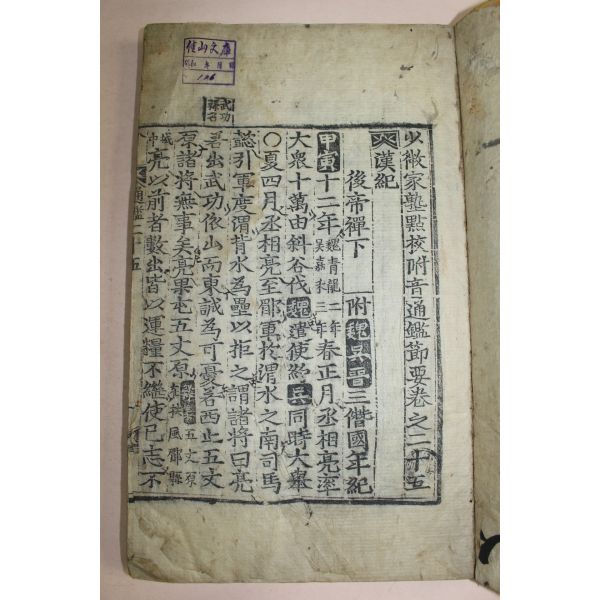 少微家塾點校附音通鑑節要卷之二十五
漢紀
後帝禪下 附魏吳晉三僭國年紀
甲寅十二年魏青龍二年吳嘉禾三年春正月丞相亮率
大衆十萬由斜谷伐魏遣使約吳同時大擧
〇夏四月丞相亮至郿軍於渭水之南司馬
懿引軍度渭背水為壘以拒之謂諸將曰亮
若出武功依山而東誠為可憂若西上五丈
原諸將無事矣亮果屯五丈原
亮以前者數出皆以運糧不繼使己志不
武功
縣名
通鑑二十五
佳山文庫
126